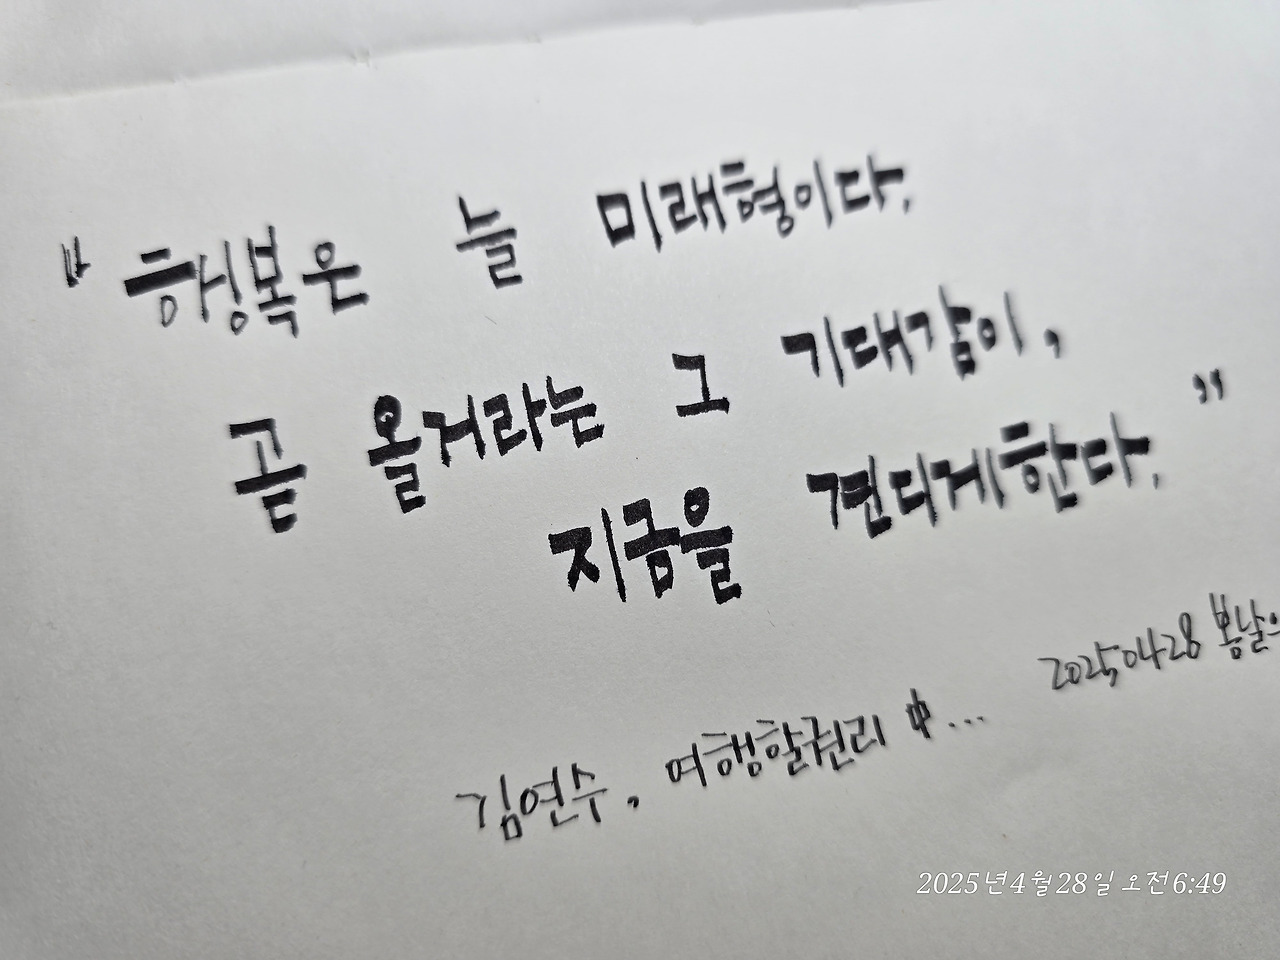 " 행복은 늘 미래형이다.
곧 올거라는 그 기대감이,
지금을 견디게한다. "
20250428 봄날의
김연수, 여행할권리 中...
2025년4월28일 오전6:49